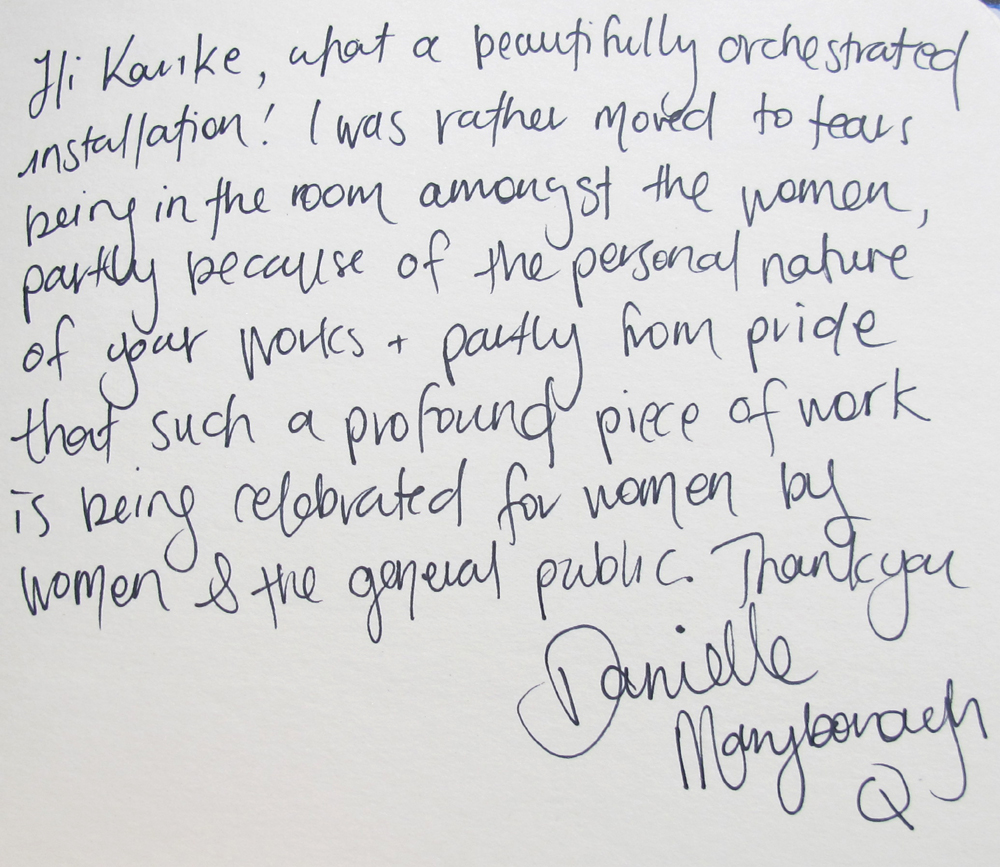 Hi Karike, what a beautifully orchestrated
installation! I was rather moved to tears
being in the room amongst the women,
partly because of the personal nature
of your works + partly from pride
that such a profound piece of work
is being celebrated for women by
women & the general public. Thankyou
Danielle
Maryborough
Q